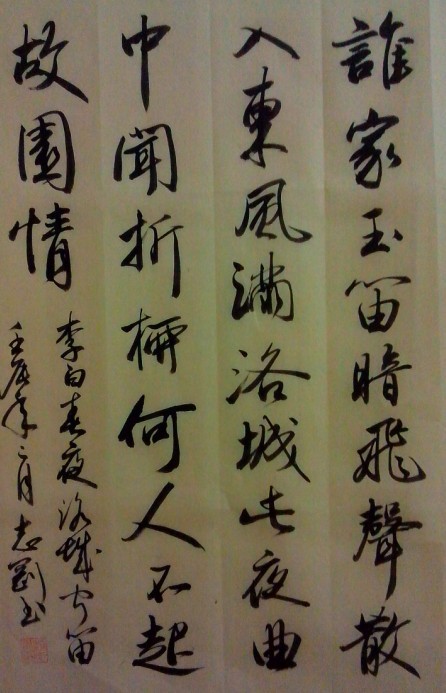 誰家玉笛暗飛聲散
入東風滿洛城此夜曲
中聞折柳何人不起
故園情
李白春夜洛城聞笛
壬辰年二月志剛书